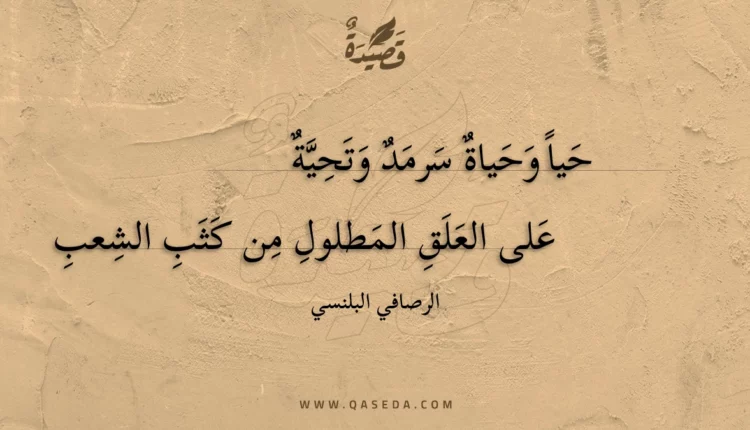 قَصِيْدَةٌ
حَياً وَحَياةٌ سَرمَدٌ وَتَحِيَّةٌ
عَلى العَلَقِ المَطلولِ مِن كَثَبِ الشِعبِ
الرصافي البلنسي
WWW.QASEDA.COM